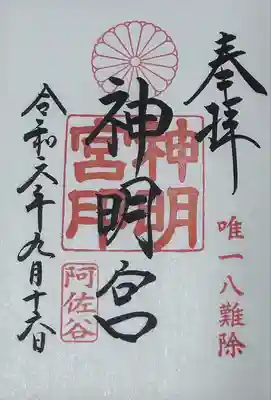 奉拝
唯一八難除
神明宮
神明宮
阿佐谷
令和六年九月十六日